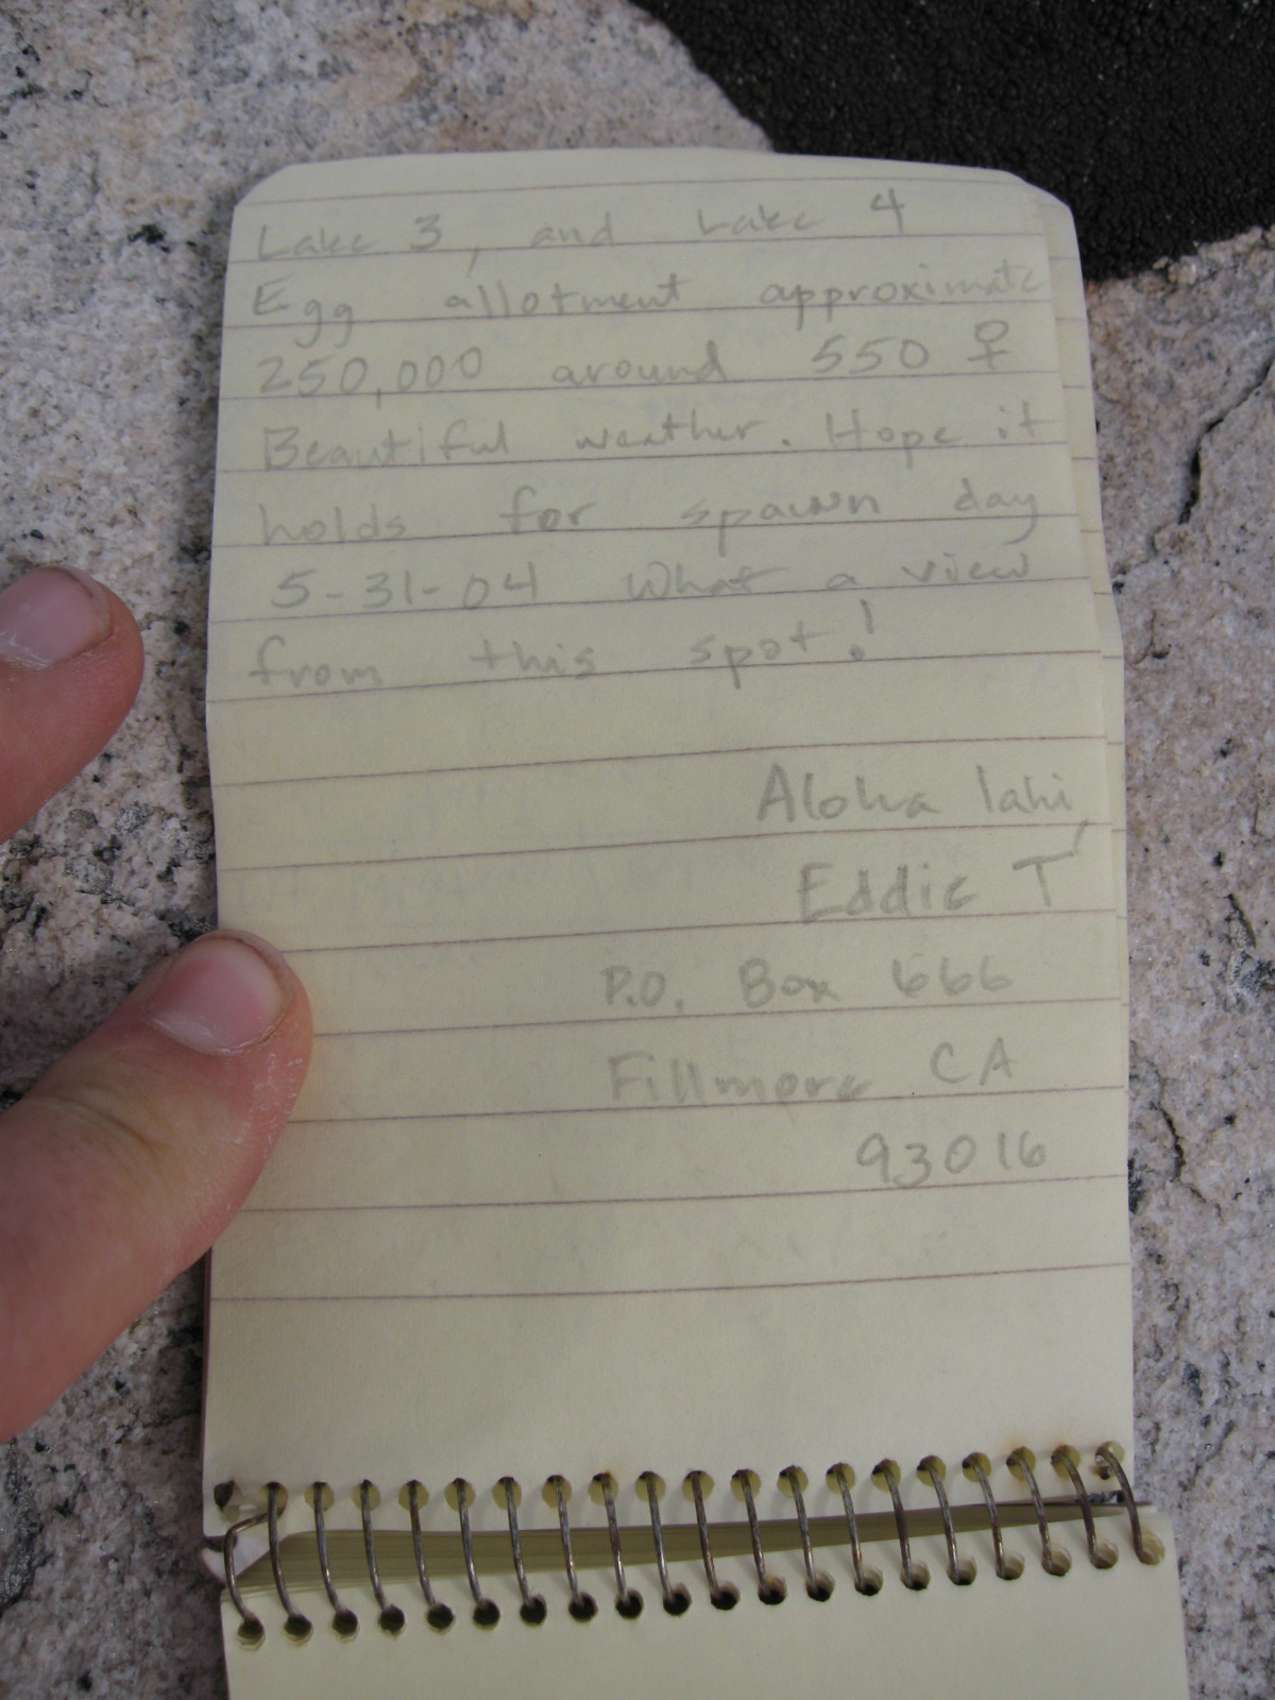 Lake 3, and Lake 4
Egg allotment approximate
250,000 around 550 ♀
Beautiful weather. Hope it
holds for spawn day
5-31-04 What a view
from this spot!
Aloha Iahi,
Eddie T
P.O. Box 666
Fillmore CA
93016